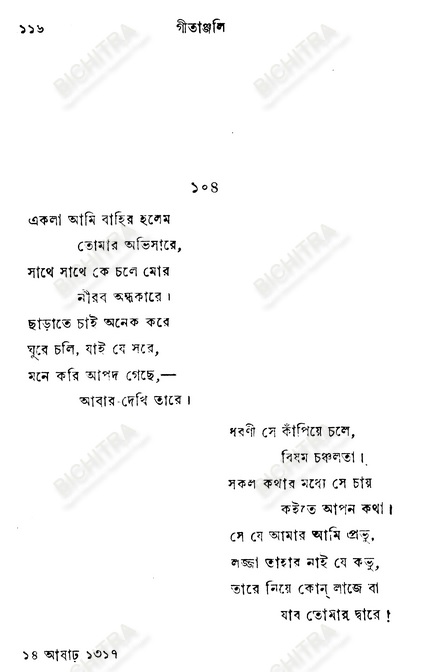 ১১৬ গীতাঞ্জলি
১০৪
একলা আমি বাহির হলেম
তোমার অভিসারে,
সাথে সাথে কে চলে মোর
নীরব অন্ধকারে।
ছাড়াতে চাই অনেক করে
ঘুরে চলি, যাই যে সরে,
মনে করি আপদ গেছে,—
আবার দেখি তারে।
ধরণী সে কাঁপিয়ে চলে,
বিষম চঞ্চলতা।
সকল কথার মধ্যে সে চায়
কইতে আপন কথা।
সে যে আমার আমি প্রভু,
লজ্জা তাহার নাই যে কভু,
তারে নিয়ে কোন্ লাজে বা
যাব তোমার দ্বারে!
১৪ আষাঢ় ১৩১৭
BICHITRA
BICHITRA
BICHITRA
BICHITRA
BICHITRA
BICHITRA
BICHITRA
BICHITRA